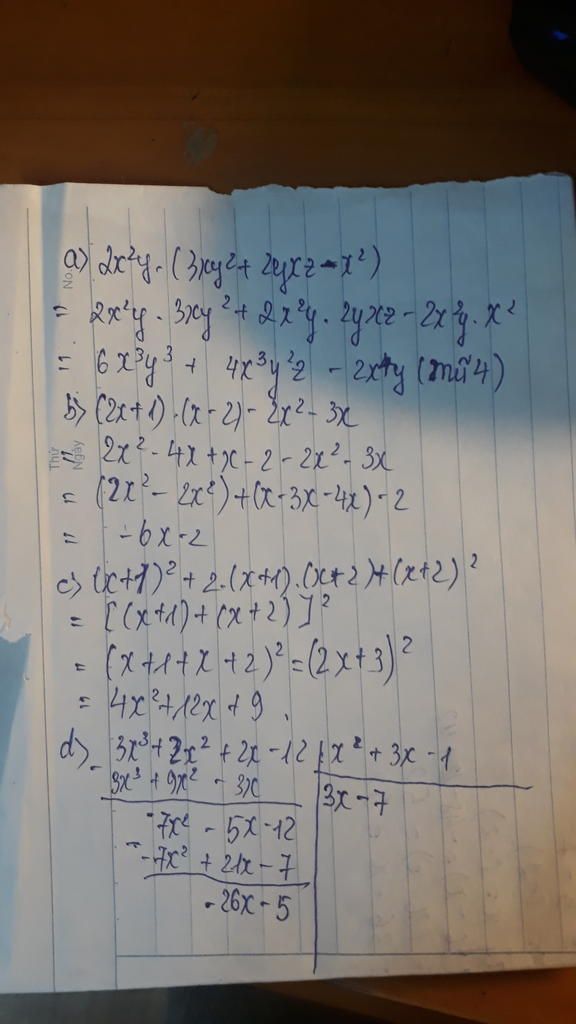 No.
a) 2x²y. (3xy² + 2yxz - x²)
= 2x²y . 3xy² + 2x²y. 2yxz - 2x²y. x²
= 6x³y³ + 4x³y²z - 2x⁴y (mũ 4)
b) (2x+1) . (x-2) - 2x² - 3x
Thứ
Ngày
= 2x² - 4x + x - 2 - 2x² - 3x
= (2x² - 2x²) + (x - 3x - 4x) - 2
= -6x - 2
c) (x+1)² + 2.(x+1).(x+2) + (x+2)²
= [(x+1) + (x+2)]²
= (x+1+x+2)² = (2x+3)²
= 4x² + 12x + 9.
d) 3x³ + 2x² + 2x - 12 | x² + 3x - 1
- 3x³ + 9x² - 3x
3x - 7
-7x² - 5x - 12
- -7x² + 21x - 7
-26x - 5